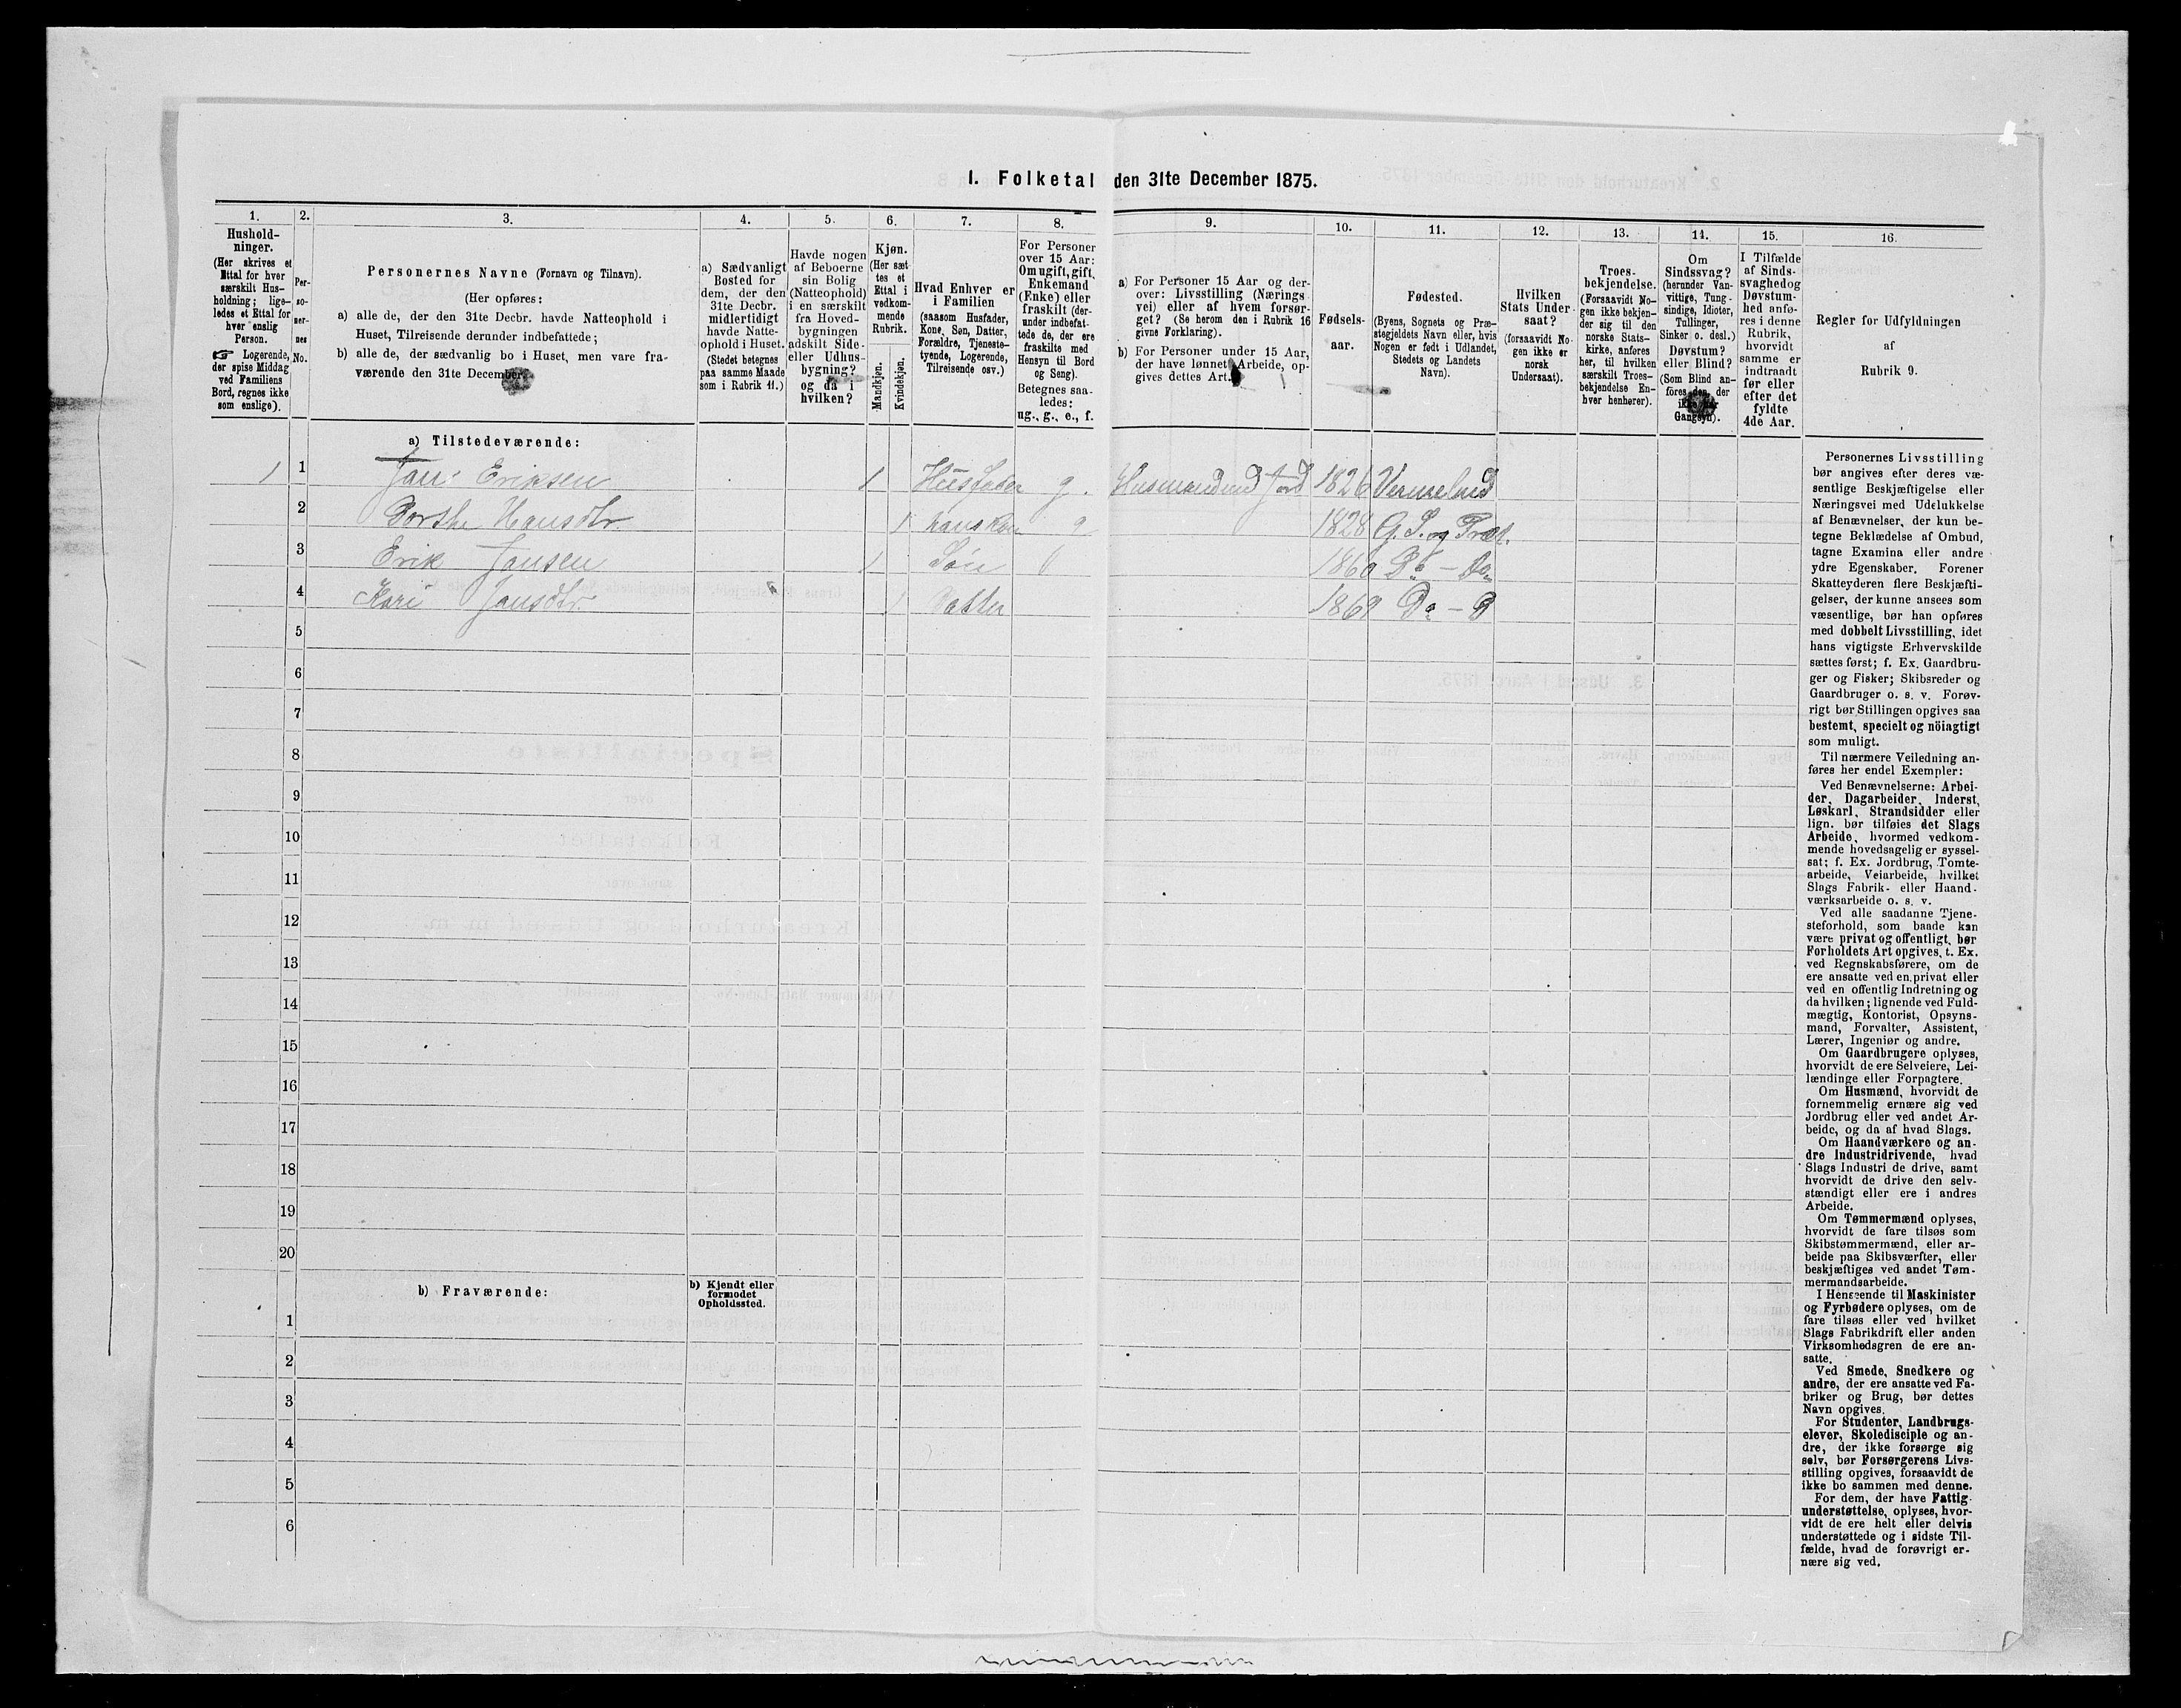 I. Folketal den 31te December 1875.
1.
2.
3.
4.
5.
6.
7.
8.
9.
10.
11.
12.
13.
14.
15.
16.
Hushold-
ninger.
(Her skrives et
Ettal for hver
særskilt Hus-
holdning; lige-
ledes et Ettal for
hver enslig
Person.
☞ Logerende,
der spise Middag
ved Familiens
Bord, regnes ikke
som enslige).
Per-
so-
ner-
nes
No.
Personernes Navne (Fornavn og Tilnavn).
(Her opføres:
a) alle de, der den 31te Decbr. havde Natteophold i
Huset, Tilreisende derunder indbefattede;
b) alle de, der sædvanlig bo i Huset, men vare fra-
værende den 31te December.
a) Sædvanligt
Bosted for
dem, der den
31te Decbr.
midlertidigt
havde Natte-
ophold i Huset.
(Stedet betegnes
paa samme Maade
som i Rubrik 11.)
Havde nogen
af Beboerne
sin Bolig
(Natteophold)
i en særskilt
fra Hoved-
bygningen
adskilt Side-
eller Udhus-
bygning?
og da i
hvilken?
Kjøn.
(Her sæt-
tes et
Ettal i
vedkom-
mende
Rubrik.
Mandkjøn.
Kvindekjøn.
Hvad Enhver er
i Familien
(saasom Husfader,
Kone, Søn, Datter,
Forældre, Tjeneste-
tyende, Logerende,
Tilreisende osv.)
For Personer
over 15 Aar:
Om ugift, gift,
Enkemand
(Enke) eller
fraskilt (der-
under indbefat-
tede de, der ere
fraskilte med
Hensyn til Bord
og Seng).
Betegnes saa-
ledes:
ug., g., e., f.
a) For Personer 15 Aar og der-
over: Livsstilling (Nærings-
vei) eller af hvem forsør-
get? (Se herom den i Rubrik 16
givne Forklaring).
b) For Personer under 15 Aar,
der have lønnet Arbeide, op-
gives dettes Art.
Fødsels-
aar.
Fødested.
(Byens, Sognets og Præ-
stegjeldets Navn eller, hvis
Nogen er født i Udlandet,
Stedets og Landets
Navn).
Hvilken
Stats Under-
saat?
(forsaavidt No-
gen ikke er
norsk
Undersaat).
Troes-
bekjendelse.
(Forsaavidt No-
gen ikke bekjen-
der sig til den
norske Stats-
kirke, anføres
her, til hvilken
særskilt Troes-
bekjendelse En-
hver henhører).
Om
Sindssvag?
(herunder Van-
vittige, Tung-
sindige, Idioter,
Tullinger,
Sinker o. desl.)
Døvstum?
eller Blind?
(Som Blind an-
føres den, der
ikke har
Gangsyn).
I Tilfælde
af Sinds-
svaghed og
Døvstum-
hed anfø-
res i denne
Rubrik,
hvorvidt
samme er
indtraadt
før eller
efter det
fyldte
4de Aar.
Regler for Udfyldningen
af
Rubrik 9.
a) Tilstedeværende:
1 1 Jan Eriksen 1 Husfader g. Husmand med Jord 1826 Vermeland
2 Borthe Hansdtr. 1 hans Kone g 1828 G. S. og Præt.
3 Erik Jansen 1 Søn 1860 Do – Do
4 Kari Jansdtr. 1 Datter 1869 Do – D
5
6
7
8
9
10
11
12
13
14
15
16
17
18
19
20
b) Fraværende:
b) Kjendt eller
formodet
Opholdssted.
1
2
3
4
5
6
Personernes Livsstilling
bør angives efter deres væ-
sentlige Beskjæftigelse eller
Næringsvei med Udelukkelse
af Benævnelser, der kun be-
tegne Beklædelse af Ombud,
tagne Examina eller andre
ydre Egenskaber. Forener
Skatteyderen flere Beskjæfti-
gelser, der kunne ansees som
væsentlige, bør han opføres
med dobbelt Livsstilling, idet
hans vigtigste Erhvervskilde
sættes først; f. Ex. Gaardbru-
ger og Fisker; Skibsreder og
Gaardbruger o. s. v. Forøv-
rigt bør Stillingen opgives saa
bestemt, specielt og nöiagtigt
som muligt.
Til nærmere Veiledning an-
føres her endel Exempler:
Ved Benævnelserne: Arbei-
der, Dagarbeider, Inderst,
Løskarl, Strandsidder eller
lign. bør tilføies det Slags
Arbeide, hvormed vedkom-
mende hovedsagelig er syssel-
sat; f. Ex. Jordbrug, Tomte-
arbeide, Veiarbeide, hvilket
Slags Fabrik- eller Haand-
værksarbeide o. s. v.
Ved alle saadanne Tjene-
steforhold, som baade kan
være privat og offentligt, bør
Forholdets Art opgives, t. Ex.
ved Regnskabsførere, om de
ere ansatte ved en privat eller
ved en offentlig Indretning og
da hvilken; lignende ved Fuld-
mægtig, Kontorist, Opsyns-
mand, Forvalter, Assistent,
Lærer, Ingeniør og andre.
Om Gaardbrugere oplyses,
hvorvidt de ere Selveiere, Lei-
lændinge eller Forpagtere.
Om Husmænd, hvorvidt de
fornemmelig ernære sig ved
Jordbrug eller ved andet Ar-
beide, og da af hvad Slags.
Om Haandværkere og an-
dre Industridrivende, hvad
Slags Industri de drive, samt
hvorvidt de drive den selv-
stændigt eller ere i andres
Arbeide.
Om Tømmermænd oplyses,
hvorvidt de fare tilsøs som
Skibstømmermænd, eller ar-
beide paa Skibsværfter, eller
beskjæftiges ved andet Tøm-
mermandsarbeide.
I Henseende til Maskinister
og Fyrbødere oplyses, om de
fare tilsøs eller ved hvilket
Slags Fabrikdrift eller anden
Virksomhedsgren de ere an-
satte.
Ved Smede, Snedkere og
andre, der ere ansatte ved Fa-
briker og Brug, bør dettes
Navn opgives.
For Studenter, Landbrugs-
elever, Skoledisciple og an-
dre, der ikke forsørge sig
selv, bør Forsørgerens Livs-
stilling opgives, forsaavidt de
ikke bo sammen med denne.
For dem, der have Fattig-
understøttelse, oplyses, hvor-
vidt de ere helt eller delvis
understøttede og i sidste Til-
fælde, hvad de forøvrigt er-
nære sig ved.